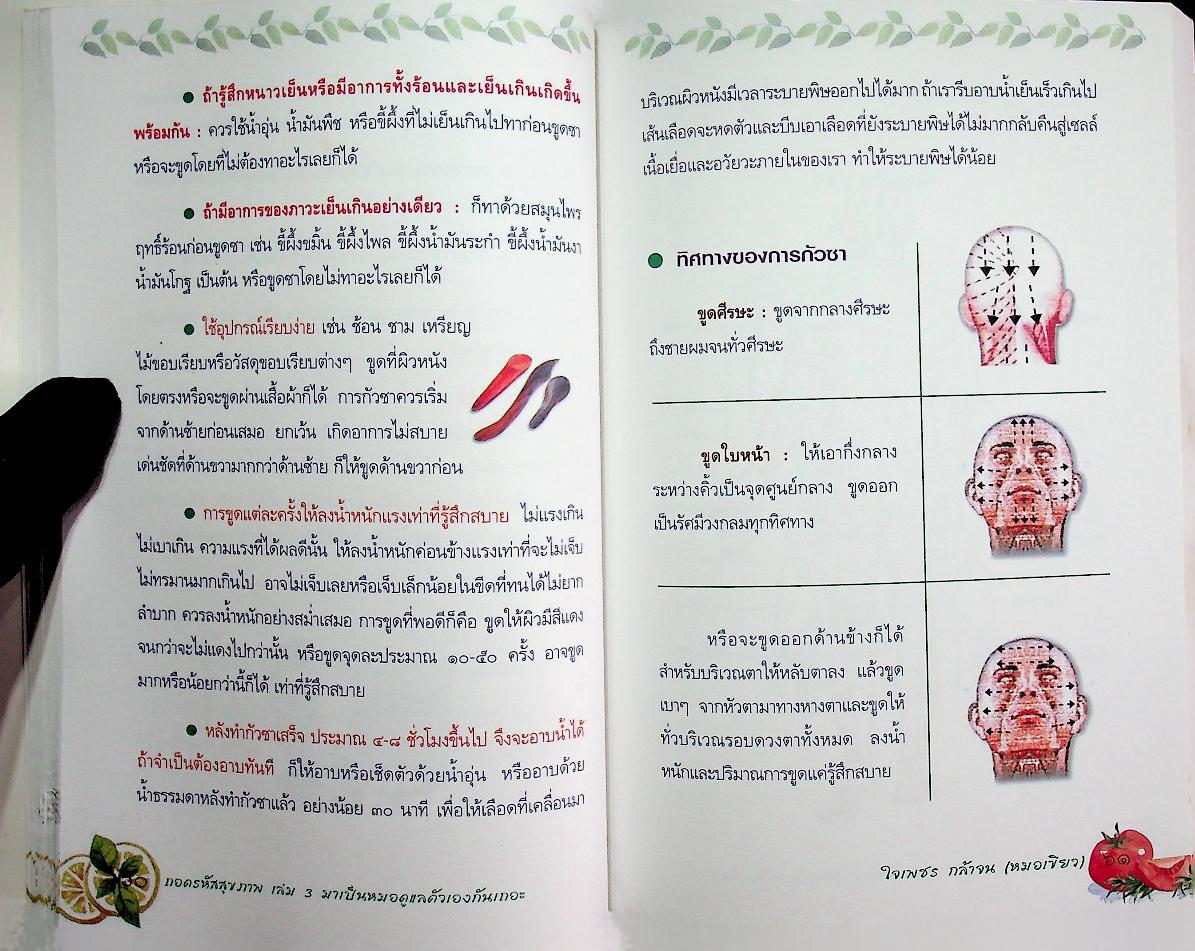 ● ถ้ารู้สึกหนาวเย็นหรือมีอาการทั้งร้อนและเย็นเกินเกิดขึ้น
พร้อมกัน : ควรใช้น้ำอุ่น น้ำมันพืช หรือขี้ผึ้งที่ไม่เย็นเกินไปทาก่อนขูดซา
หรือจะขูดโดยที่ไม่ต้องทาอะไรเลยก็ได้
● ถ้ามีอาการของภาวะเย็นเกินอย่างเดียว : ก็ทาด้วยสมุนไพร
ฤทธิ์ร้อนก่อนขูดซา เช่น ขี้ผึ้งขมิ้น ขี้ผึ้งไพล ขี้ผึ้งน้ำมันระกำ ขี้ผึ้งน้ำมันงา
น้ำมันโกฐ เป็นต้น หรือขูดซาโดยไม่ทาอะไรเลยก็ได้
● ใช้อุปกรณ์เรียบง่าย เช่น ช้อน ชาม เหรียญ
ไม้ขอบเรียบหรือวัสดุขอบเรียบต่างๆ ขูดที่ผิวหนัง
โดยตรงหรือจะขูดผ่านเสื้อผ้าก็ได้ การกัวซาควรเริ่ม
จากด้านซ้ายก่อนเสมอ ยกเว้น เกิดอาการไม่สบาย
เด่นชัดที่ด้านขวามากกว่าด้านซ้าย ก็ให้ขูดด้านขวาก่อน
● การขูดแต่ละครั้งให้ลงน้ำหนักแรงเท่าที่รู้สึกสบาย ไม่แรงเกิน
ไม่เบาเกิน ความแรงที่ได้ผลดีนั้น ให้ลงน้ำหนักค่อนข้างแรงเท่าที่จะไม่เจ็บ
ไม่ทรมานมากเกินไป อาจไม่เจ็บเลยหรือเจ็บเล็กน้อยในขีดที่ทนได้ไม่ยาก
ลำบาก ควรลงน้ำหนักอย่างสม่ำเสมอ การขูดที่พอดีก็คือ ขูดให้ผิวมีสีแดง
จนกว่าจะไม่แดงไปกว่านั้น หรือขูดจุดละประมาณ ๑๐-๕๐ ครั้ง อาจขูด
มากหรือน้อยกว่านี้ก็ได้ เท่าที่รู้สึกสบาย
● หลังทำกัวซาเสร็จ ประมาณ ๔-๘ ชั่วโมงขึ้นไป จึงจะอาบน้ำได้
ถ้าจำเป็นต้องอาบทันที ก็ให้อาบหรือเช็ดตัวด้วยน้ำอุ่น หรืออาบด้วย
น้ำธรรมดาหลังทำกัวซาแล้ว อย่างน้อย ๓๐ นาที เพื่อให้เลือดที่เคลื่อนมา
ถอดรหัสสุขภาพ เล่ม 3 มาเป็นหมอดูแลตัวเองกันเถอะ
บริเวณผิวหนังมีเวลาระบายพิษออกไปได้มาก ถ้าเรารีบอาบน้ำเย็นเร็วเกินไป
เส้นเลือดจะหดตัวและบีบเอาเลือดที่ยังระบายพิษได้ไม่มากกลับคืนสู่เซลล์
เนื้อเยื่อและอวัยวะภายในของเรา ทำให้ระบายพิษได้น้อย
● ทิศทางของการกัวซา
ขูดศีรษะ : ขูดจากกลางศีรษะ
ถึงชายผมจนทั่วศีรษะ
ขูดใบหน้า : ให้เอากึ่งกลาง
ระหว่างคิ้วเป็นจุดศูนย์กลาง ขูดออก
เป็นรัศมีวงกลมทุกทิศทาง
หรือจะขูดออกด้านข้างก็ได้
สำหรับบริเวณตาให้หลับตาลง แล้วขูด
เบาๆ จากหัวตามาทางหางตาและขูดให้
ทั่วบริเวณรอบดวงตาทั้งหมด ลงน้ำ
หนักและปริมาณการขูดแค่รู้สึกสบาย
ใจเพชร กล้าจน (หมอเขียว) ๖๑